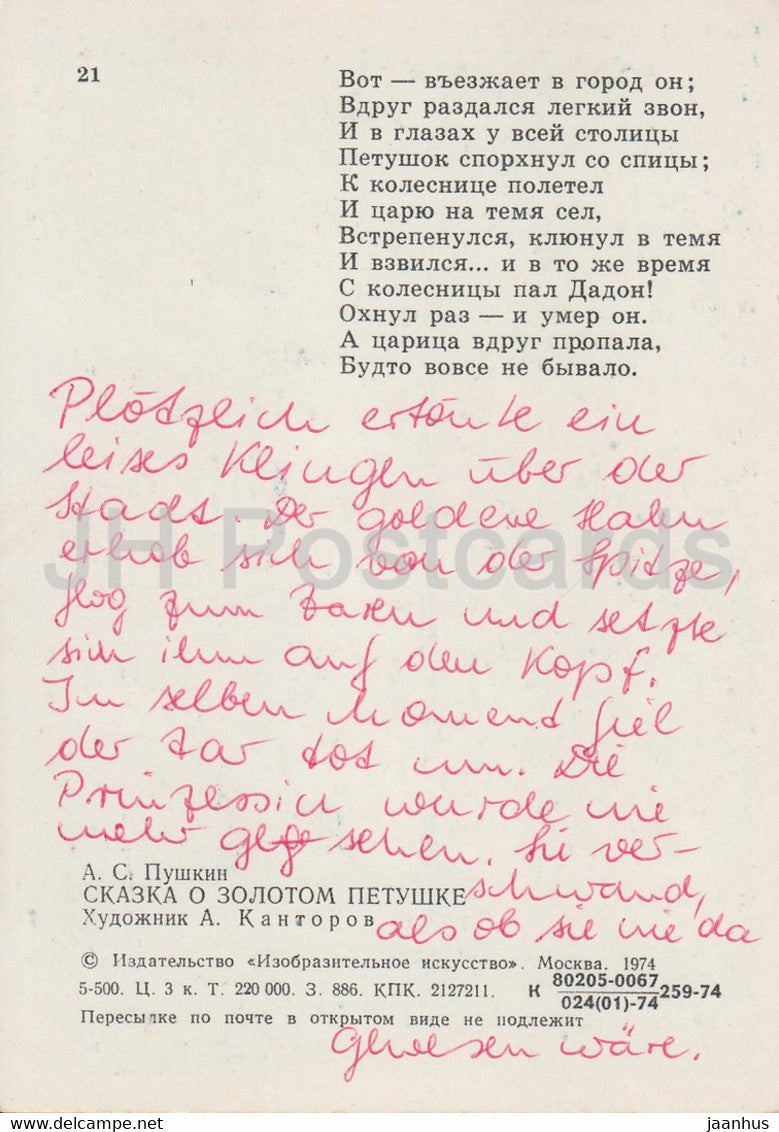 21
Вот — въезжает в город он;
Вдруг раздался легкий звон,
И в глазах у всей столицы
Петушок спорхнул со спицы;
К колеснице полетел
И царю на темя сел,
Встрепенулся, клюнул в темя
И взвился... и в то же время
С колесницы пал Дадон!
Охнул раз — и умер он.
А царица вдруг пропала,
Будто вовсе не бывало.
Plötzlich ertönte ein
leises Klingen über der
Stadt. Der goldene Hahn
erhob sich von der Spitze,
flog zum Zaren und setzte
sich ihm auf den Kopf.
Im selben Moment fiel
der Zar tot um. Die
Prinzessin wurde nie
mehr gesehen. Sie ver-
schwand,
als ob sie nie da
gewesen wäre.
JH Postcards
А. С. Пушкин
СКАЗКА О ЗОЛОТОМ ПЕТУШКЕ
Художник А. Канторов
© Издательство «Изобразительное искусство». Москва. 1974
5-500. Ц. 3 к. Т. 220 000. З. 886. КПК. 2127211. К 80205-0067/024(01)-74 259-74
Пересылке по почте в открытом виде не подлежит
www.delcampe.net
jaanhus